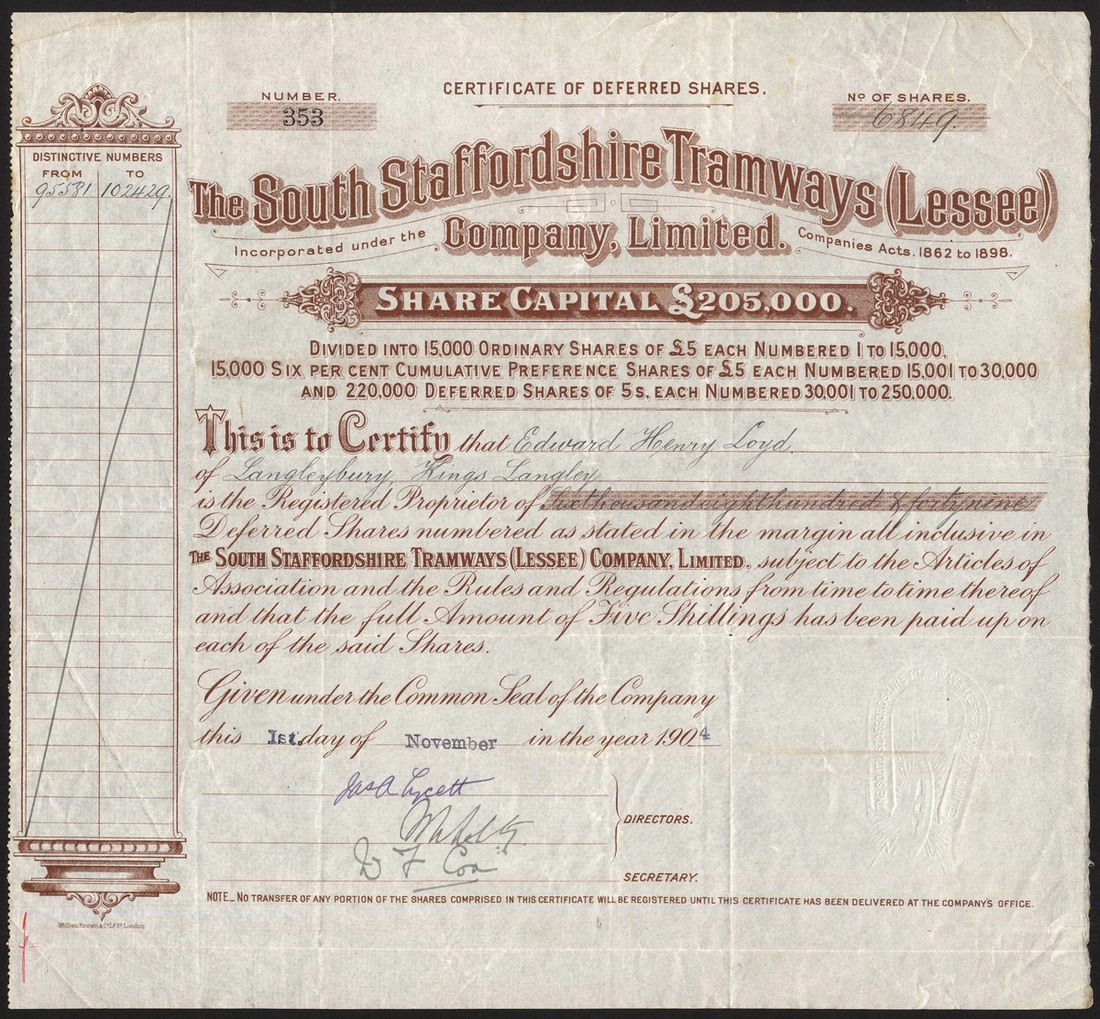 CERTIFICATE OF DEFERRED SHARES.
NUMBER.
353
No OF SHARES.
6849.
DISTINCTIVE NUMBERS
FROM TO
95581 102429.
The South Staffordshire Tramways (Lessee)
Company, Limited.
Incorporated under the Companies Acts. 1862 to 1898.
SHARE CAPITAL £205,000.
DIVIDED INTO 15,000 ORDINARY SHARES OF £5 EACH NUMBERED 1 TO 15,000,
15,000 SIX PER CENT CUMULATIVE PREFERENCE SHARES OF £5 EACH NUMBERED 15,001 TO 30,000
AND 220,000 DEFERRED SHARES OF 5s. EACH NUMBERED 30,001 TO 250,000.
This is to Certify that Edward Henry Loyd.
of Langleybury, Kings Langley
is the Registered Proprietor of Six thousand eight hundred & forty nine
Deferred Shares numbered as stated in the margin all inclusive in
THE SOUTH STAFFORDSHIRE TRAMWAYS (LESSEE) COMPANY, LIMITED, subject to the Articles of
Association and the Rules and Regulations from time to time thereof
and that the full Amount of Five Shillings has been paid up on
each of the said Shares.
Given under the Common Seal of the Company
this 1st. day of November in the year 1904
Jas A Lycett
DIRECTORS.
D F Cox
SECRETARY.
NOTE_ NO TRANSFER OF ANY PORTION OF THE SHARES COMPRISED IN THIS CERTIFICATE WILL BE REGISTERED UNTIL THIS CERTIFICATE HAS BEEN DELIVERED AT THE COMPANY'S OFFICE.
William Brown & Co Ld London